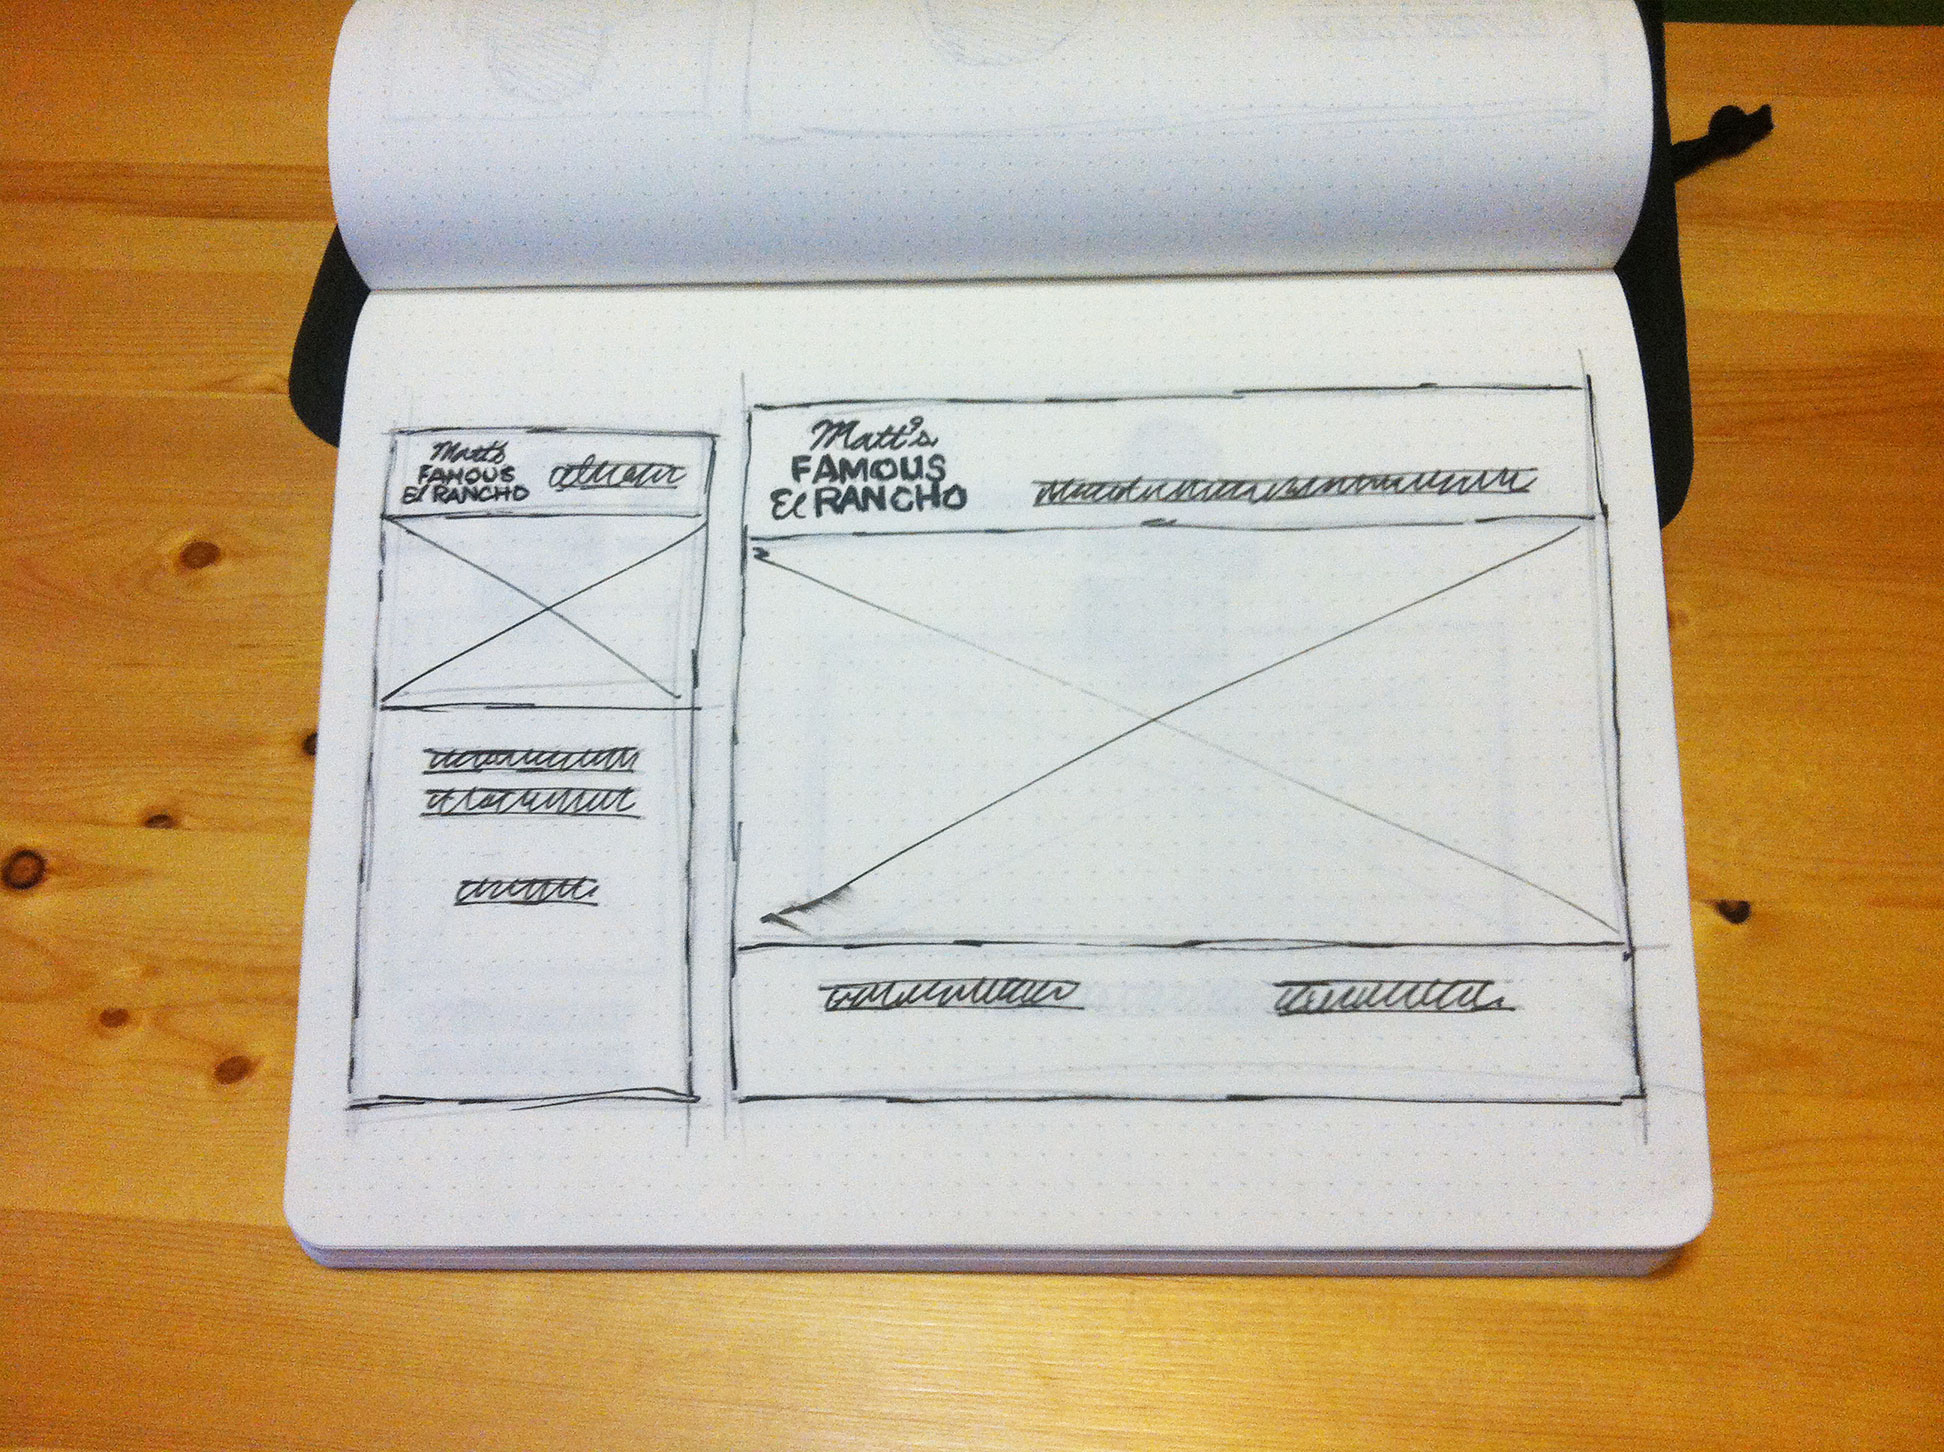 Matt's
FAMOUS
El RANCHO
Matt's
FAMOUS
El RANCHO